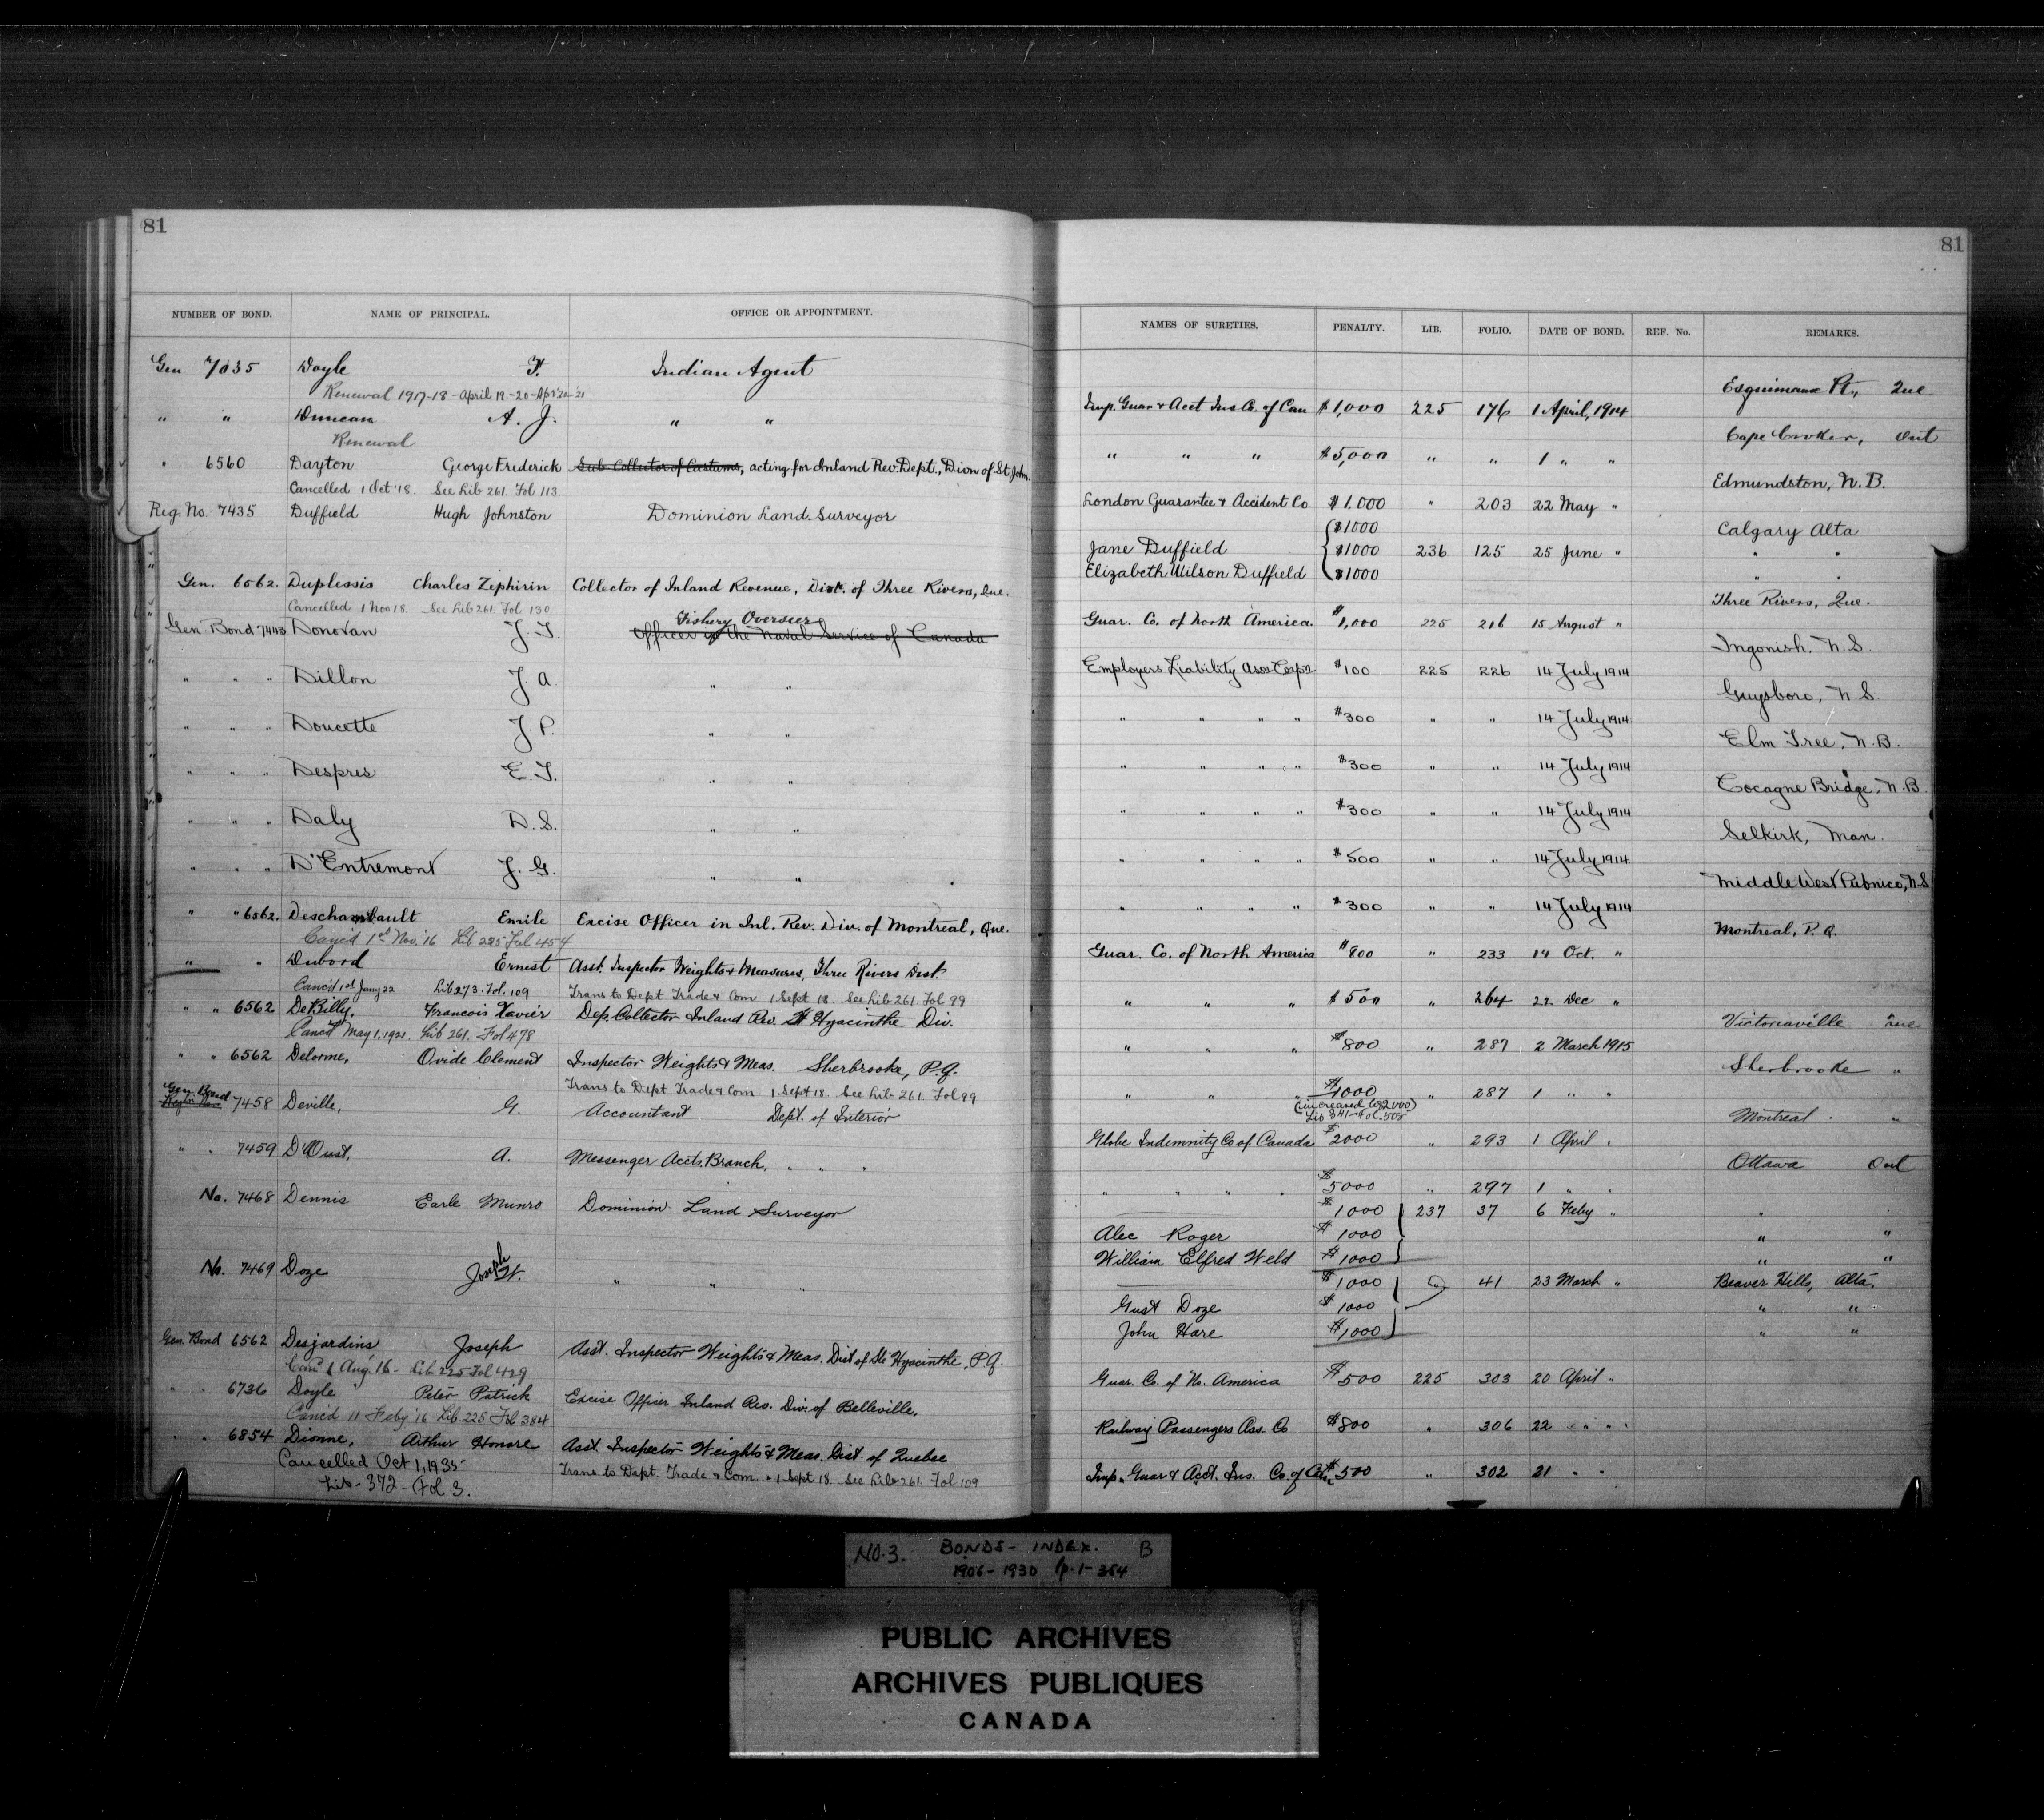 81
NUMBER OF BOND. NAME OF PRINCIPAL. OFFICE OR APPOINTMENT.
Gen 7035 Doyle F. Indian Agent
Renewal 1917-18 - April 19-20-Apr '20-'21
" " Duncan A. J. " "
Renewal
" 6560 Dayton George Frederick Sub-Collector of Customs, acting for Inland Rev. Dept., Divn of St John.
Cancelled 1 Oct '18. See Lib 261. Fol 113.
Reg. No. 7435 Duffield Hugh Johnston Dominion Land Surveyor
Gen. 6562. Duplessis Charles Zephirin Collector of Inland Revenue, Dist. of Three Rivers, Que.
Cancelled 1 Nov 18. See Lib 261. Fol 130
Fishery Overseer
Gen. Bond 7443 Donovan J. T. Officer of the Naval Service of Canada
" " " Dillon J. A. " "
" " " Doucette J. P. " "
" " " Despres E. T. " "
" " " Daly D. S. " "
" " " D'Entremont J. G. " "
" " 6562. Deschambault Emile Excise Officer in Inl. Rev. Div. of Montreal, Que.
Canc'd 1st Nov. '16 Lib 225 Fol 454
" " Dubord Ernest Asst. Inspector Weights & Measures, Three Rivers Dist.
Canc'd 1st Jany 22 Lib 273. Fol. 109 Trans to Dept Trade & Com 1 Sept 18. See Lib 261. Fol 99
" " 6562 DeBilly, Francois Xavier Dep. Collector Inland Rev. St Hyacinthe Div.
Canc'd May 1, 1921. Lib 261. Fol 478
" " 6562 Delorme, Ovide Clement Inspector Weights & Meas. Sherbrooke, P.Q.
Trans to Dept Trade & Com 1 Sept 18. See Lib 261 Fol 99
Gen. Bond
7458 Deville, G. Accountant Dept. of Interior
" " 7459 D'Oust, A. Messenger Accts. Branch, " " "
No. 7468 Dennis Earle Munro Dominion Land Surveyor
No. 7469 Doze Joseph W. " " "
Gen. Bond 6562 Desjardins Joseph Asst. Inspector Weights & Meas. Dist of Ste Hyacinthe, P.Q.
Canc'd 1 Aug. '16 - Lib 225 Fol 429
" " 6736 Doyle Peter Patrick Excise Officer Inland Rev. Div. of Belleville,
Canc'd 11 Feby '16 Lib. 225 Fol 384
" " 6854 Dionne, Arthur Honore Asst. Inspector Weights & Meas. Dist. of Quebec
Cancelled Oct 1, 1935 Trans to Dept. Trade & Com. 1 Sept 18. See Lib 261. Fol 109
Lib - 372 - Fol 3.
81
NAMES OF SURETIES. PENALTY. LIB. FOLIO. DATE OF BOND. REF. No. REMARKS.
Esquimaux Pt., Que
Imp. Guar & Acct Ins Co. of Can $1,000 225 176 1 April, 1914
Cape Croker, Ont
" " " $5,000 " " 1 " "
Edmundston, N.B.
London Guarantee & Accident Co $1.000 " 203 22 May "
$1000 Calgary Alta
Jane Duffield $1000 236 125 25 June " " "
Elizabeth Wilson Duffield $1000 " "
Three Rivers, Que.
Guar. Co. of North America. $1,000 225 216 15 August "
Ingonish. N.S.
Employers Liability Assn Corp'n $100 225 226 14 July 1914
Guysboro, N.S.
" " " " $300 " " 14 July 1914
Elm Tree, N.B.
" " " " $300 " " 14 July 1914
Cocagne Bridge, N.B.
" " " " $300 " " 14 July 1914
Selkirk, Man.
" " " " $500 " " 14 July 1914
Middle West Pubnico, N.S
" " " " $300 " " 14 July 1914
Montreal, P.Q.
Guar. Co. of North America $800 " 233 14 Oct. "
" " " $500 " 264 22 Dec "
Victoriaville Que
" " " $800 " 287 2 March 1915
Sherbrooke "
" " " $1000 " 287 1 " "
(increased to $2000) Lib 341-Fol. 508
Montreal "
Globe Indemnity Co of Canada $2000 " 293 1 April "
Ottawa Ont
" " " " $5000 " 297 1 " "
$1000 237 37 6 Feby " "
Alec Roger $1000 " "
William Elfred Weld $1000 " "
$1000 " 41 23 March " Beaver Hills, Alta.
Gust Doze $1000 " "
John Hare $1000 " "
Guar. Co. of No. America $500 225 303 20 April "
Railway Passengers Ass. Co $800 " 306 22 " "
Imp. Guar & Acct. Ins. Co. of Can $500 " 302 21 " "
NO. 3. BONDS - INDEX. B
1906-1930 p. 1-364
PUBLIC ARCHIVES
ARCHIVES PUBLIQUES
CANADA